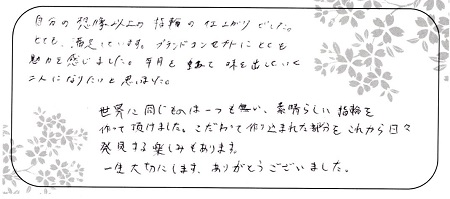 自分の想像以上の指輪の仕上がりでした。
とても、満足しています。ブランドコンセプトにとても
魅力を感じました。年月を重ねて味を出していく
二人になりたいと思いました。
世界に同じものは一つも無い、素晴らしい指輪を
作って頂けました。こだわって作り込まれた部分をこれから日々
発見する楽しみもあります。
一生大切にします、ありがとうございました。